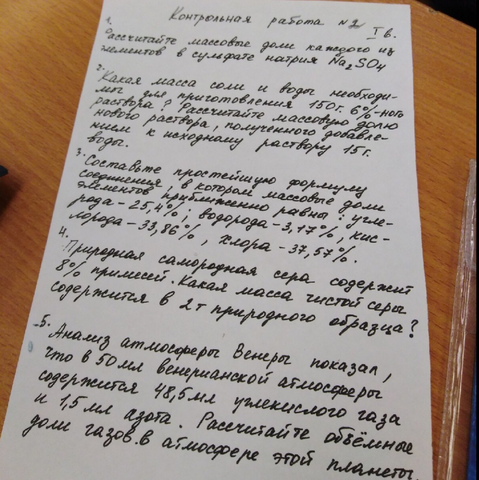 Контрольная работа №2 I в.
1.
Рассчитайте массовые доли каждого из
элементов в сульфате натрия Na₂SO₄
2.
Какая масса соли и воды необходи-
мы для приготовления 150г. 6%-ного
раствора? Рассчитайте массовую долю
нового раствора, полученного добавле-
нием к исходному раствору 15г.
воды.
3.
Составьте простейшую формулу
соединения, в котором массовые доли
элементов приближенно равны: угле-
рода-25,4%; водорода-3,17%; кис-
лорода-33,86%, хлора-37,57%.
4.
Природная самородная сера содержит
8% примесей. Какая масса чистой серы
содержится в 2т природного образца?
5.
Анализ атмосферы Венеры показал,
что в 50мл венерианской атмосферы
содержится 48,5мл углекислого газа
и 1,5мл азота. Рассчитайте объёмные
доли газов в атмосфере этой планеты.